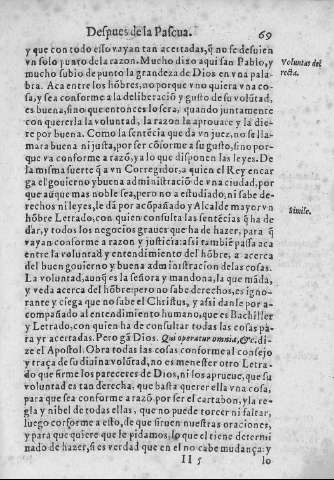 Despues de la Pascua. 69
y que con todo esso vayan tan acertadas, q̃ no se desuien
vn solo punto de la razon. Mucho dixo aqui san Pablo, y
mucho subio de punto la grandeza de Dios en vna pala-
bra. Aca entre los hõbres, no porque vno quiera vna co-
sa, y sea conforme a la deliberació y gusto de su volútad,
es buena, sino que entonces lo sera, quando juntamente
con quererla la voluntad, la razon la aprouare y la die-
re por buena. Como la sentēcia que da vn juez, no se lla-
mara buena ni justa, por ser cõforme a su gusto, sino por-
que va conforme a razó, y a lo que disponen las leyes. De
la misma suerte q̃ a vn Corregidor, a quien el Rey encar
ga el gouierno y buena administració de vna ciudad, por
que aunque mas noble sea, pero no a estudiado, ni sabe de-
rechos ni leyes, le dã por acópañado y Alcalde mayor vn
hõbre Letrado, con quien consulta las sentēcias q̃ ha de
dar, y todos los negocios graues que ha de hazer, para q̃
vayan conforme a razon y justicia: assi tambiē passa aca
entre la voluntad y entendimiento del hõbre, a acerca
del buen gouierno y buena administracion de las cosas.
La voluntad, aunq̃ es la señora y mandona, la que mãda,
y veda acerca del hõbre: pero no sabe derechos, es igno-
rante y ciega que no sabe el Christus, y assi danle por a-
compañado al entendimiento humano, que es Bachiller
y Letrado, con quien ha de consultar todas las cosas pa-
ra yr acertadas. Pero gã Dios. Qui operatur omnia, &c. di-
ze el Apostol. Obra todas las cosas conforme al consejo
y traça de su diuina volútad, no es menester otro Letra-
do que firme los pareceres de Dios, ni los aprueue, que su
voluntad es tan derecha, que basta querer ella vna cosa,
para que sea conforme a razó, por ser el cartabon, y la re-
gla y nibel de todas ellas, que no puede torcer ni faltar,
luego conforme a esto, de que siruen nuestras oraciones,
y para que quiere que le pidamos, lo que el tiene determi
nado de hazer, si es verdad que en el no cabe mudança: y
II 5 lo
Voluntas dei
recta.
Simile.